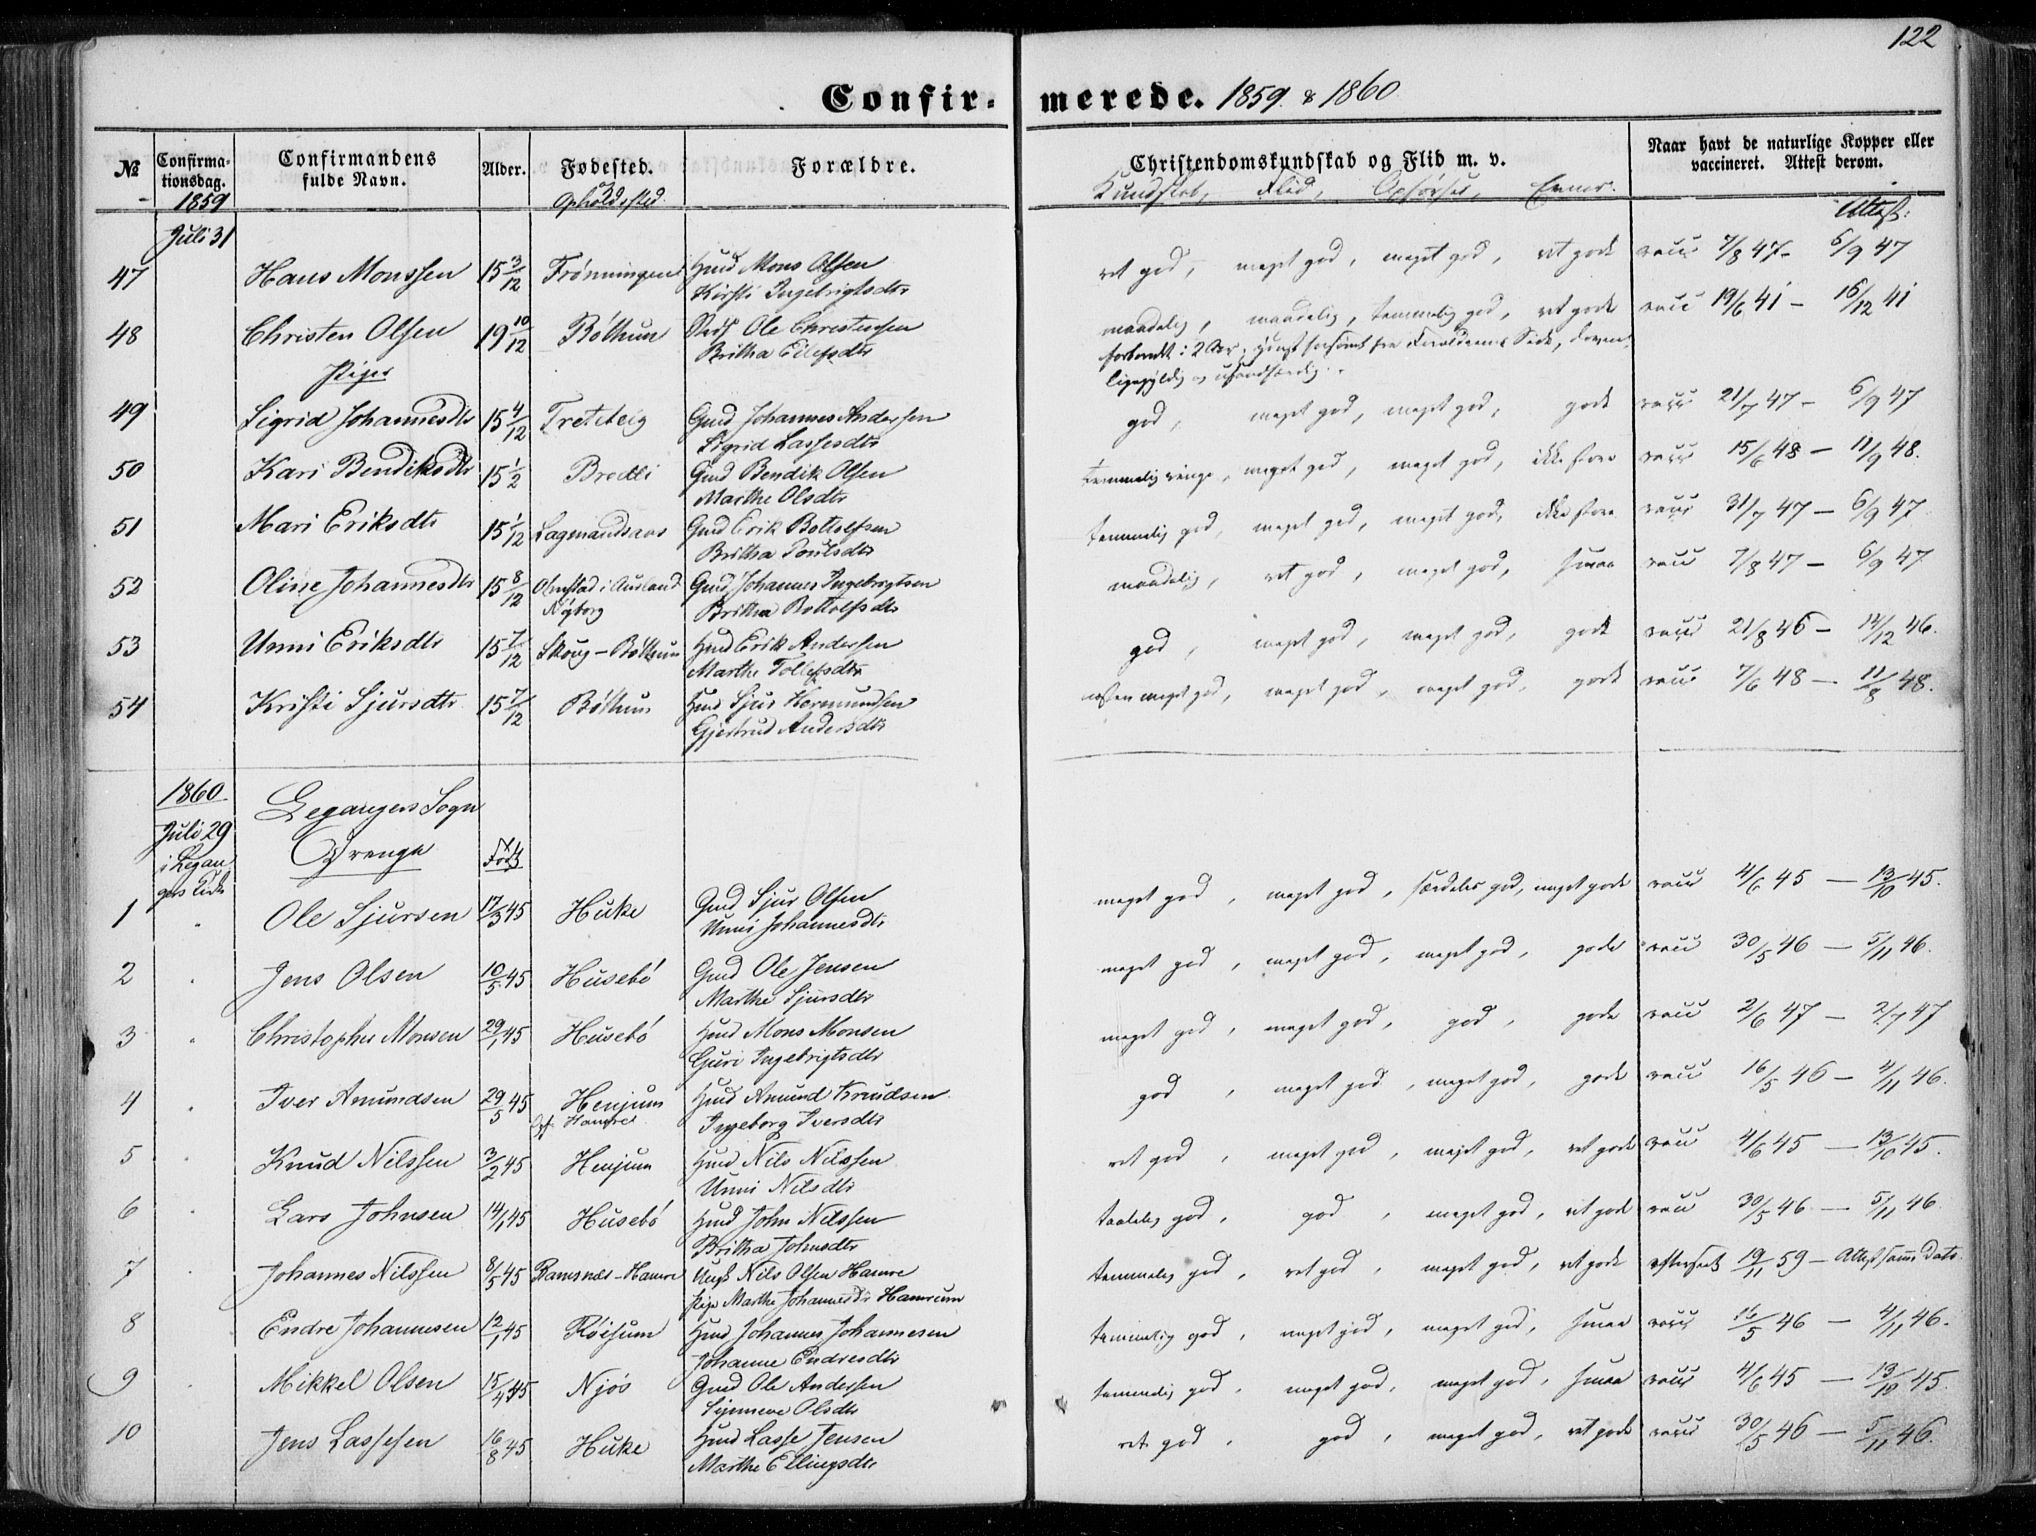 122
Confirmerede. 1859 & 1860
№ Confirmationsdag. Confirmandens fulde Navn. Alder. Fødested. Forældre. Christendomskundskab og Flid m. v. Naar havt de naturlige Kopper eller vaccineret. Attest derom.
1859 Opholdssted Kundskab, Flid, Opførsel, Evner. Attest:
Juli 31
47 Hans Monssen 15 3/12 Frønningen Huusm Mons Olsen ret god, meget god, meget god, ret gode vacc 7/8 47 - 6/9 47
Kirsti Ingebrigtsdtr
48 Christen Olsen 19 10/12 Bøthun Ole Christensen maadelig, maadelig, temmelig god, ret gode vacc 19/6 41 - 16/12 41
Britha Eilefsdtr
Piger
49 Sigrid Johannesdtr 15 4/12 Treteteig Gmd Johannes Andersen god, meget god, meget god, gode vacc 21/7 47 - 6/9 47
Sigrid Lassesdtr
50 Kari Bendiksdtr 15 1/2 Bredli Gmd Bendik Olsen temmelig ringe, meget god, meget god, ikke store vacc 15/6 48 - 11/9 48.
Marthe Olsdtr
51 Mari Eriksdtr 15 1/12 Lagmandsaas Gmd Erik Bottolfsen temmelig god, meget god, meget god, ikke store vacc 31/7 47 - 6/9 47
Britha Poulsdtr
52 Oline Johannesdtr 15 8/12 Ohnstad i Aurland Gmd Johannes Ingebrigtsen maadelig, ret god, meget god, smaa vacc 7/8 47 - 6/9 47
Nyborg Britha Bottolfsdtr
53 Unni Eriksdtr 15 7/12 Skoug - Bøthun Huusm Erik Andersen god, meget god, meget god, gode vacc 21/8 46 - 14/12 46.
Marthe Tollefsdtr
54 Kristi Sjursdtr 15 7/12 Bøthun Huusm Sjur Hermundsen næsten meget god, meget god, meget god, gode vacc 7/6 48 - 11/8 48.
Gjertrud Andersdtr
1860 Leganger Sogn
Juli 29 Drenge Født
i Legangers Kirke
1 " Ole Sjursen 17/3 45 Huke Gmd Sjur Olsen meget god, meget god, særdeles god, meget gode vacc 4/6 45 - 13/10 45.
Unni Johannesdtr
2 " Jens Olsen 10/5 45 Husebø Gmd Ole Jensen meget god, meget god, meget god, gode vacc 30/5 46 - 5/11 46.
Marthe Sjursdtr
3 " Christopher Monsen 29/1 45 Husebø Huusm Mons Monsen meget god, meget god, god, gode vacc 2/6 47 - 2/7 47
Guri Ingebrigtsdtr
4 " Iver Amundsen 29/5 45 Henjum Huusm Amund Knudsen god, meget god, meget god, gode vacc 16/5 46 - 4/11 46.
Hamre Ingeborg Iversdtr
5 " Knud Nilssen 3/2 45 Henjum Huusm Nils Nilssen ret god, meget god, meget god, ret gode vacc 4/6 45 - 13/10 45.
Unni Nilsdtr
6 " Lars Johnsen 14/1 45 Husebø Huusm John Nilssen taalelig god, god, meget god, ret gode vacc 30/5 46 - 5/11 46
Britha Johnsdtr
7 " Johannes Nilssen 8/5 45 Ramsnæs - Hamre Ungk Nils Olsen Hamre temmelig god, ret god, meget god, ret gode 19/11 59 - Attest samme Dato.
Pige Marthe Johannesdtr Hamrum
8 Endre Johannesen 12/1 45 Røisum Huusm Johannes Johannesen temmelig god, meget god, meget god, smaa vacc 16/5 46 - 4/11 46.
Johanne Endresdtr
9 " Mikkel Olsen 15/4 45 Njøs Gmd Ole Andersen temmelig god, meget god, meget god, smaa vacc 4/6 45 - 13/10 45.
Synneve Olsdtr
10 Jens Lassesen 16/8 45 Huke Huusm Lasse Jensen ret god, god, meget god, ret gode vacc 30/5 46 - 5/11 46.
Marthe Ellingsdtr